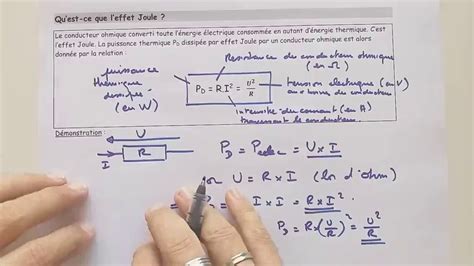 Qu'est-ce que l'effet Joule ?
Le conducteur ohmique converti toute l'énergie électrique consommée en autant d'énergie thermique. C'est
l'effet Joule. La puissance thermique PD dissipée par effet Joule par un conducteur ohmique est alors
donnée par la relation :
Resistance du conducteur ohmique
(en Ω)
puissance
thermique
dissipée
(en W)
PD = R.I² = U²/R
tension électrique (en V)
aux bornes du conducteur
intensité du courant (en A)
traversant le conducteur
Démonstration :
U
I
R
PD = Pelec = U x I
or U = R x I (loi d'ohm)
I x I = R x I²
PD = R x (U/R)² = U²/R